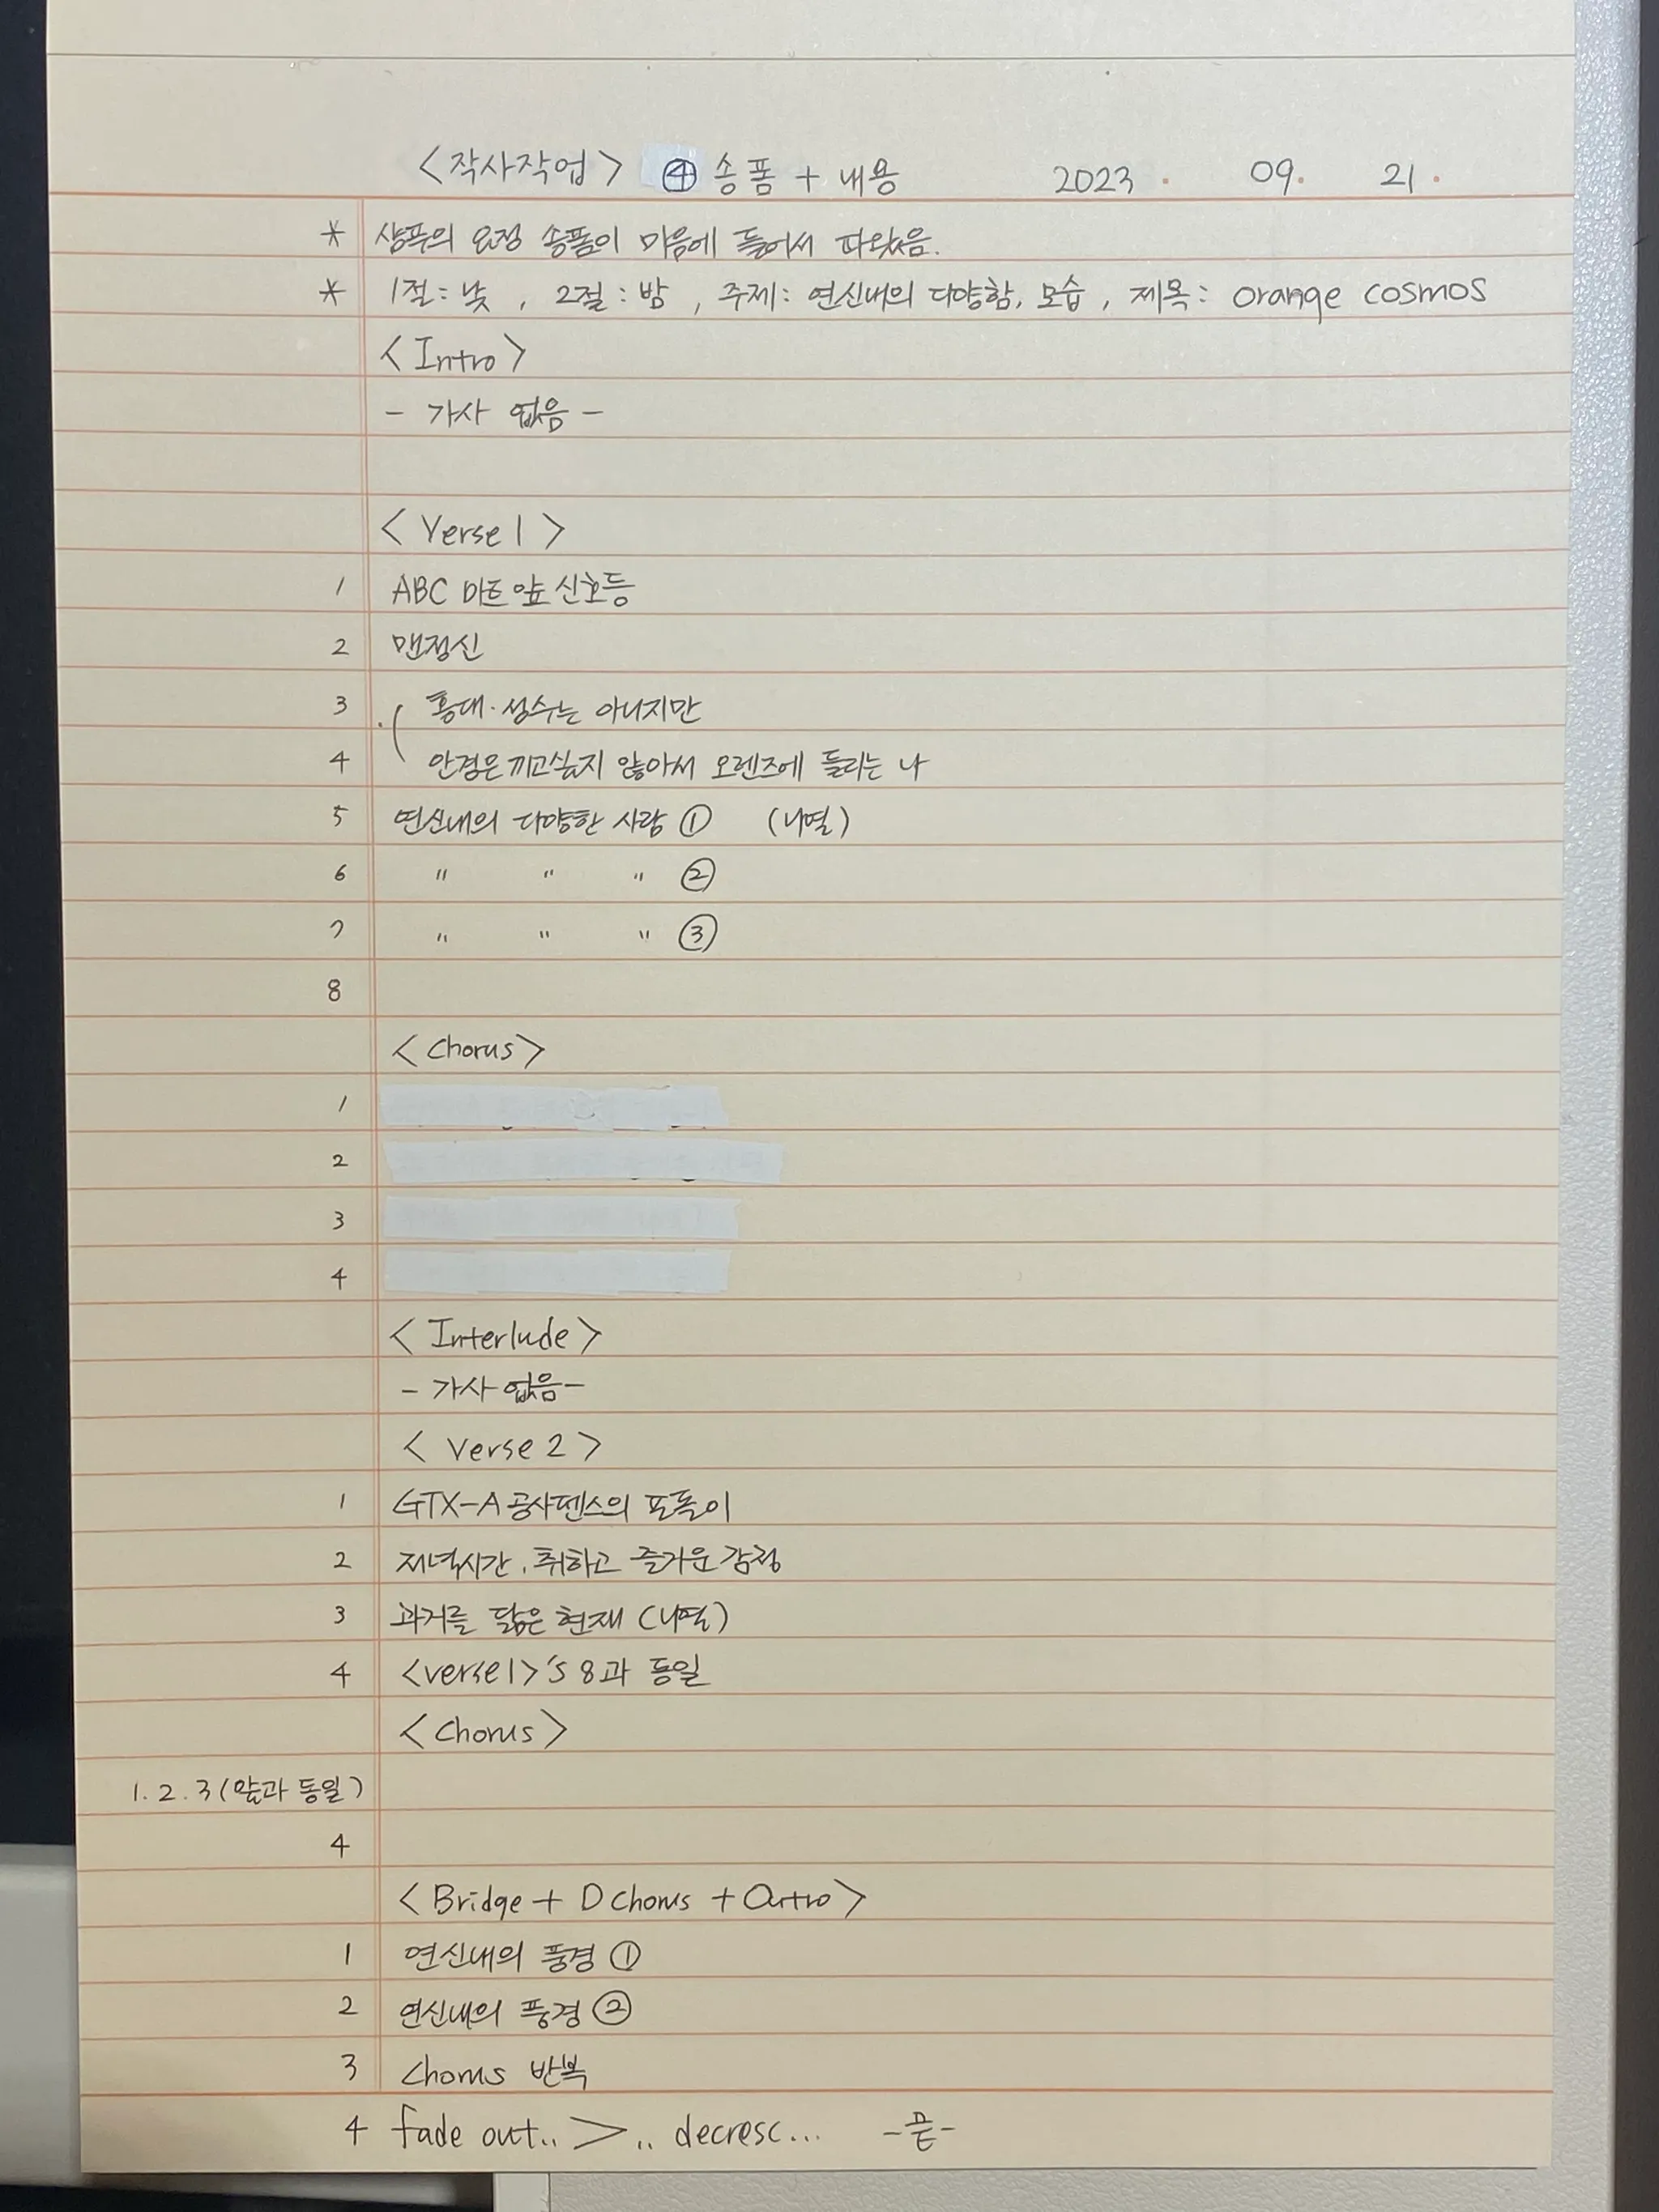 <작사작업> ④ 송폼 + 내용 2023. 09. 21.
* 샴푸의 요정 송폼이 마음에 들어서 따왔음.
* 1절: 낮, 2절: 밤, 주제: 연신내의 다양함, 모습, 제목: orange cosmos
<Intro>
- 가사 없음 -
<Verse 1>
1 ABC 마트 앞 신호등
2 맨정신
3 홍대·성수는 아니지만
4 안경은 끼고싶지 않아서 오렌즈에 들리는 나
5 연신내의 다양한 사람 ① (나열)
6 " " " ②
7 " " " ③
8
<Chorus>
1
2
3
4
<Interlude>
- 가사 없음 -
<Verse 2>
1 GTX-A 공사펜스의 포돌이
2 저녁시간, 취하고 즐거운 감정
3 과거를 닮은 현재 (나열)
4 <verse1>'s 8과 동일
<Chorus>
1. 2. 3 (앞과 동일)
4
<Bridge + D chorus + Outro>
1 연신내의 풍경 ①
2 연신내의 풍경 ②
3 chorus 반복
4 fade out.. > .. decresc... -끝-